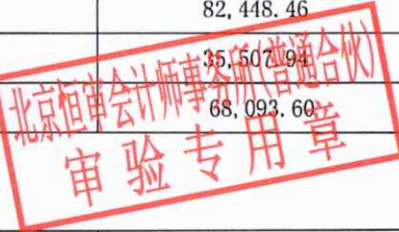 82,448.46
35,507.94
68,093.60
北京恒审会计师事务所(普通合伙)
审验专用章